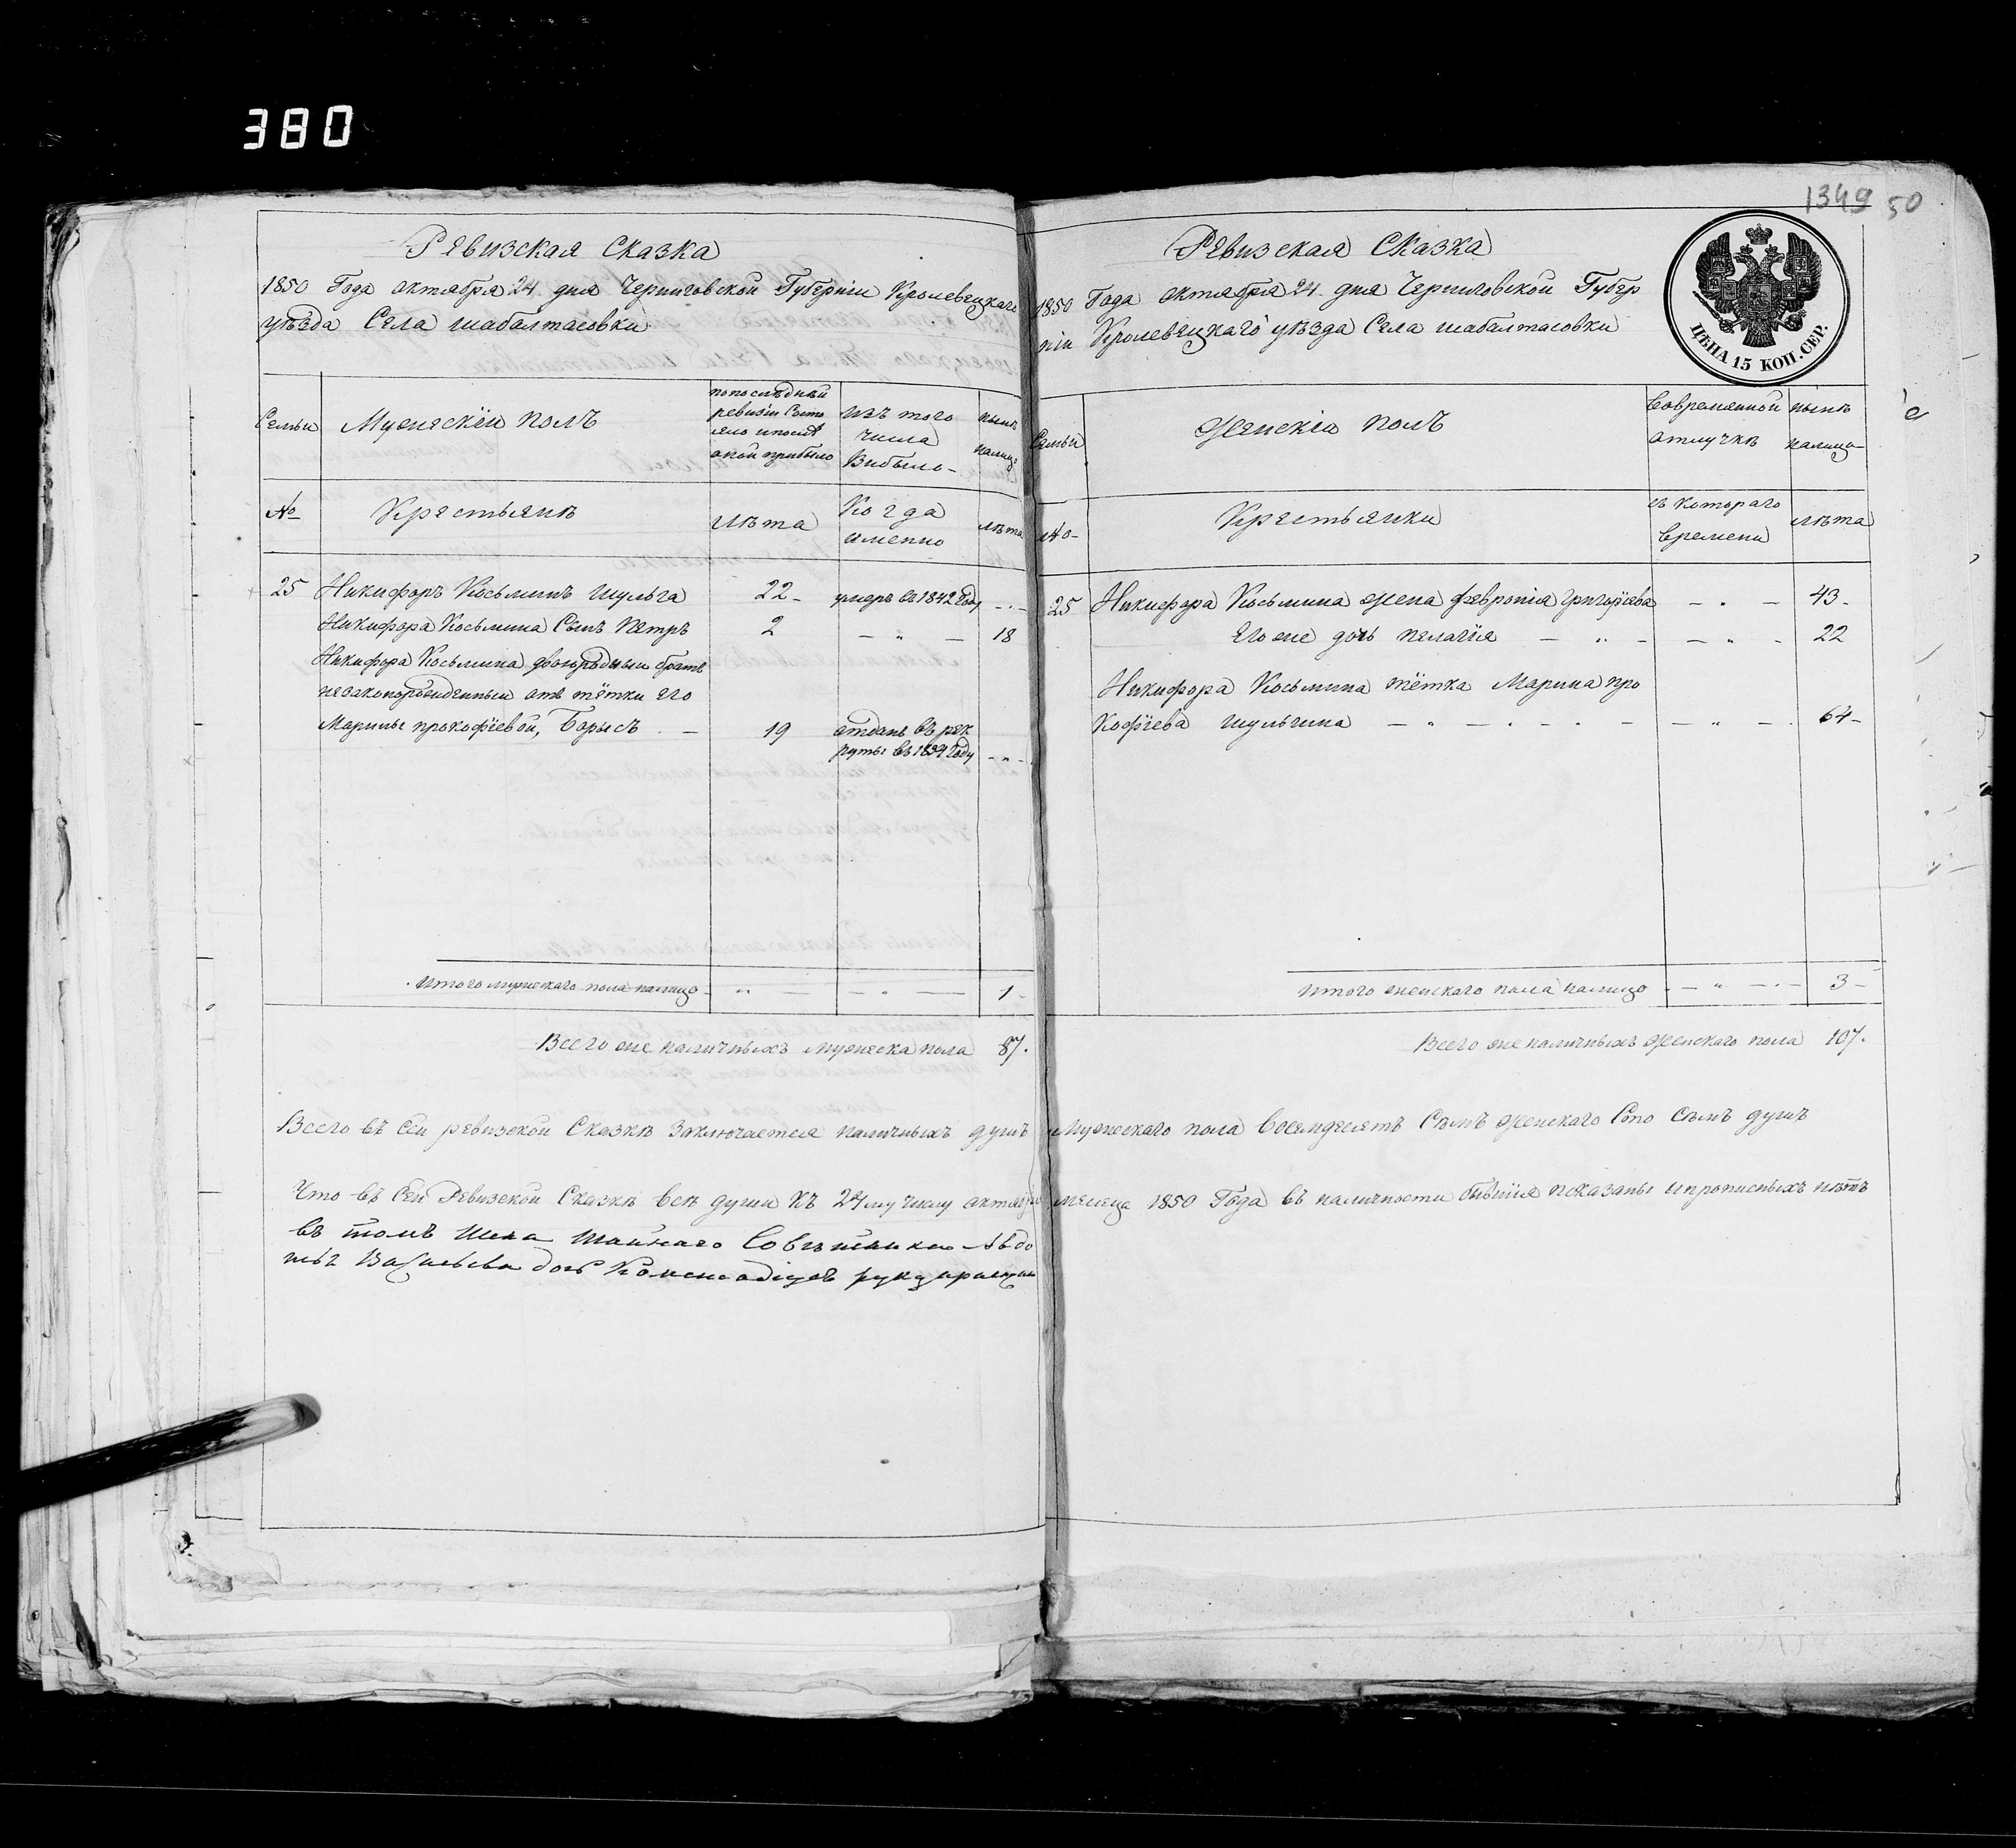 380
1349 50
Ревизская Сказка
1850 Года октября 24. дня Черниговской Губерніи Кролевецкаго
уѣзда Села шабалтасовки
Семьи
Мужескій полъ
по послѣдней
ревизіи Состо
яло и послѣ
оной прибыло
изъ того
числа
Выбыло
нынѣ
налицо
№
Крестьянѣ
лѣта
Когда
именно
лѣта
25 Никифоръ Косьминъ шульга 22 - умеръ въ 1842 Году - . -
Никифора Косьмина Сынъ Петръ 2 — „ — 18
Никифора Косьмина двоюродный братъ
незаконорожденный отъ тётки его
Марины прокофіевой, Борысъ . — 19 отданъ въ рек
руты въ 1834 Году - „ -
Итого мужескаго пола налицо — „ — — „ — 1 -
Всего же наличныхъ мужеска пола 87.
Ревизская Сказка
1850 Года октября 24. дня Черниговской Губер
ніи Кролевецкаго уѣзда Села шабалтасовки
ЦѢНА 15 КОП. СЕР.
Семьи
Женскій полъ
Вовременной
отлучкѣ
нынѣ
налицо
№
Крестьянки
съ котораго
времени
лѣта
25 Никифора Косьмина жена февронія григорієва — . — 43 -
Его же дочь пелагія — „ — — „ - 22
Никифора Косьмина тётка Марина про
кофіева шульгина — „ — . — . — — „ — . 64 -
Итого женскаго пола налицо — „ — . — 3 -
Всего же наличныхъ женскаго пола 107.
Всего въ Сей ревизской Сказкѣ заключается наличныхъ душъ мужескаго пола Восемдесятъ Семъ женскаго Сто Семъ душъ
Что въ Сей Ревизской Сказкѣ всѣ души къ 24му числу октября месяца 1850 Года въ наличности бывшія показаны и прописныхъ нѣтъ
въ томъ